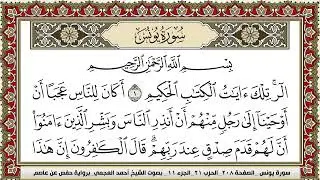 سُورَةُ يُونُسَ
بِسْمِ ٱللَّهِ ٱلرَّحْمَٰنِ ٱلرَّحِيمِ
الٓر ۚ تِلْكَ ءَايَٰتُ ٱلْكِتَٰبِ ٱلْحَكِيمِ ١ أَكَانَ لِلنَّاسِ عَجَبًا أَنْ
أَوْحَيْنَآ إِلَىٰ رَجُلٍ مِّنْهُمْ أَنْ أَنذِرِ ٱلنَّاسَ وَبَشِّرِ ٱلَّذِينَ ءَامَنُوٓا۟
أَنَّ لَهُمْ قَدَمَ صِدْقٍ عِندَ رَبِّهِمْ ۗ قَالَ ٱلْكَٰفِرُونَ إِنَّ هَٰذَا
سورة يونس الصفحة ٢٠٨ الحزب ٢١ الجزء ١١ بصوت الشيخ أحمد العجمي برواية حفص عن عاصم